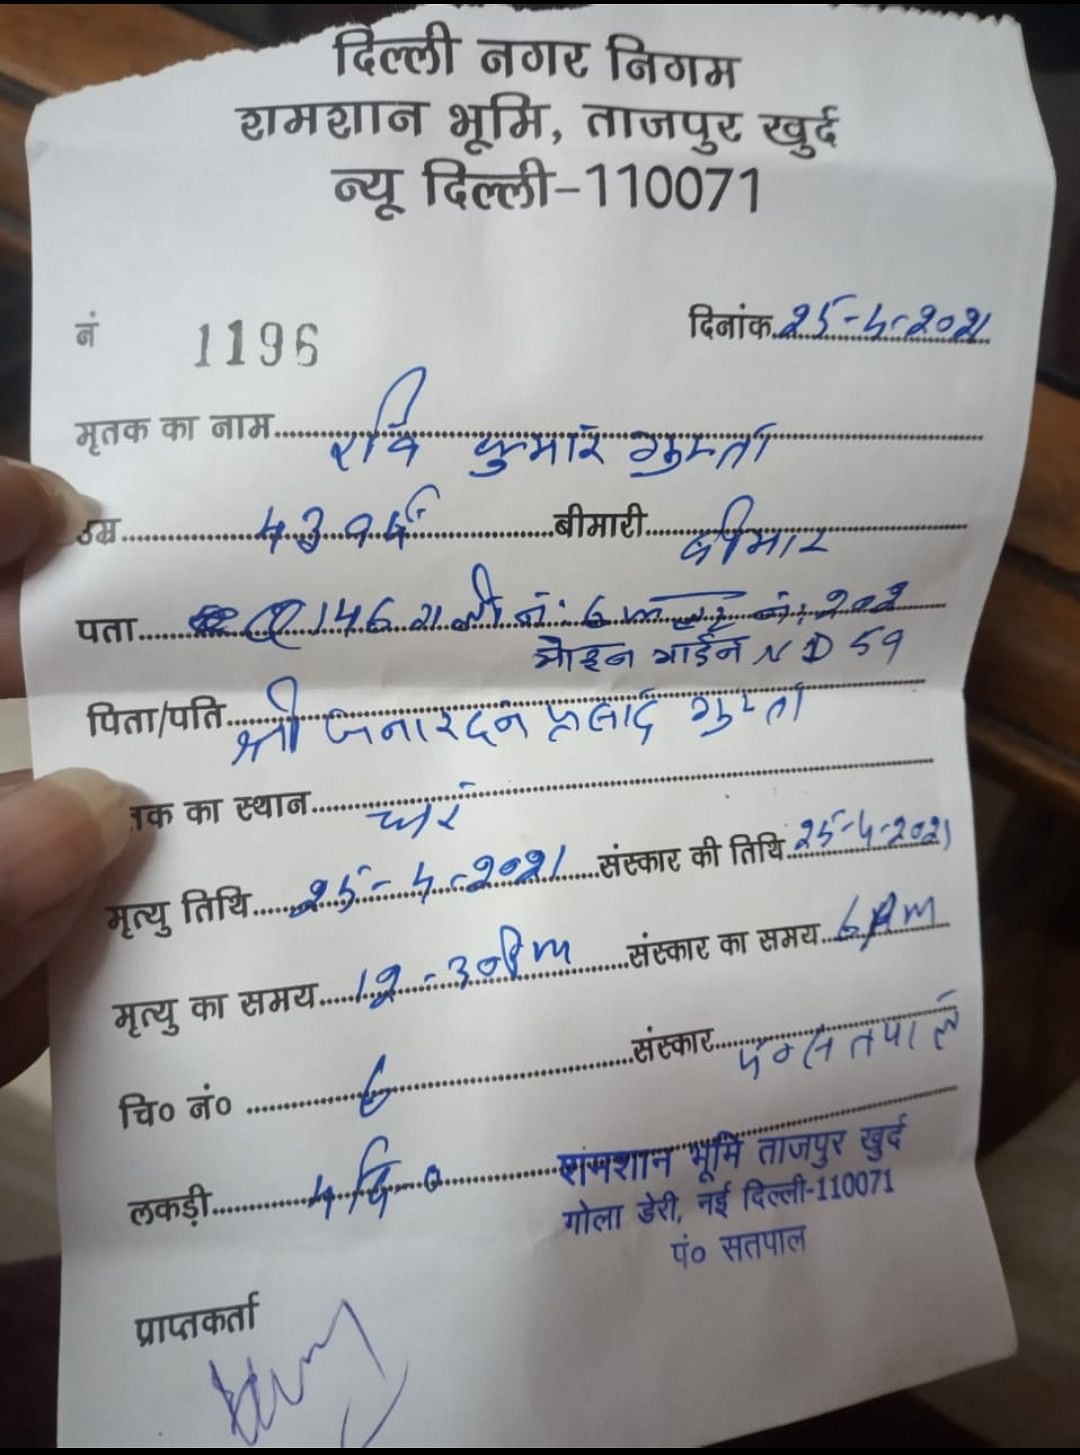 दिल्ली नगर निगम
शमशान भूमि, ताजपुर खुर्द
न्यू दिल्ली-110071
नं 1196 दिनांक 25-4-2021
मृतक का नाम रवि कुमार गुप्ता
उम्र 43 वर्ष बीमारी बीमार
पता 146 गली नं: 6 नं: 202
मोहन गार्डन ND 59
पिता/पति श्री जनारदन प्रसाद गुप्ता
तक का स्थान घर
मृत्यु तिथि 25-4-2021 संस्कार की तिथि 25-4-2021
मृत्यु का समय 12-30PM संस्कार का समय 6 PM
चि० नं० 6 संस्कार पं० सतपाल
लकड़ी 4 कि०
शमशान भूमि ताजपुर खुर्द
गोला डेरी, नई दिल्ली-110071
पं० सतपाल
प्राप्तकर्ता